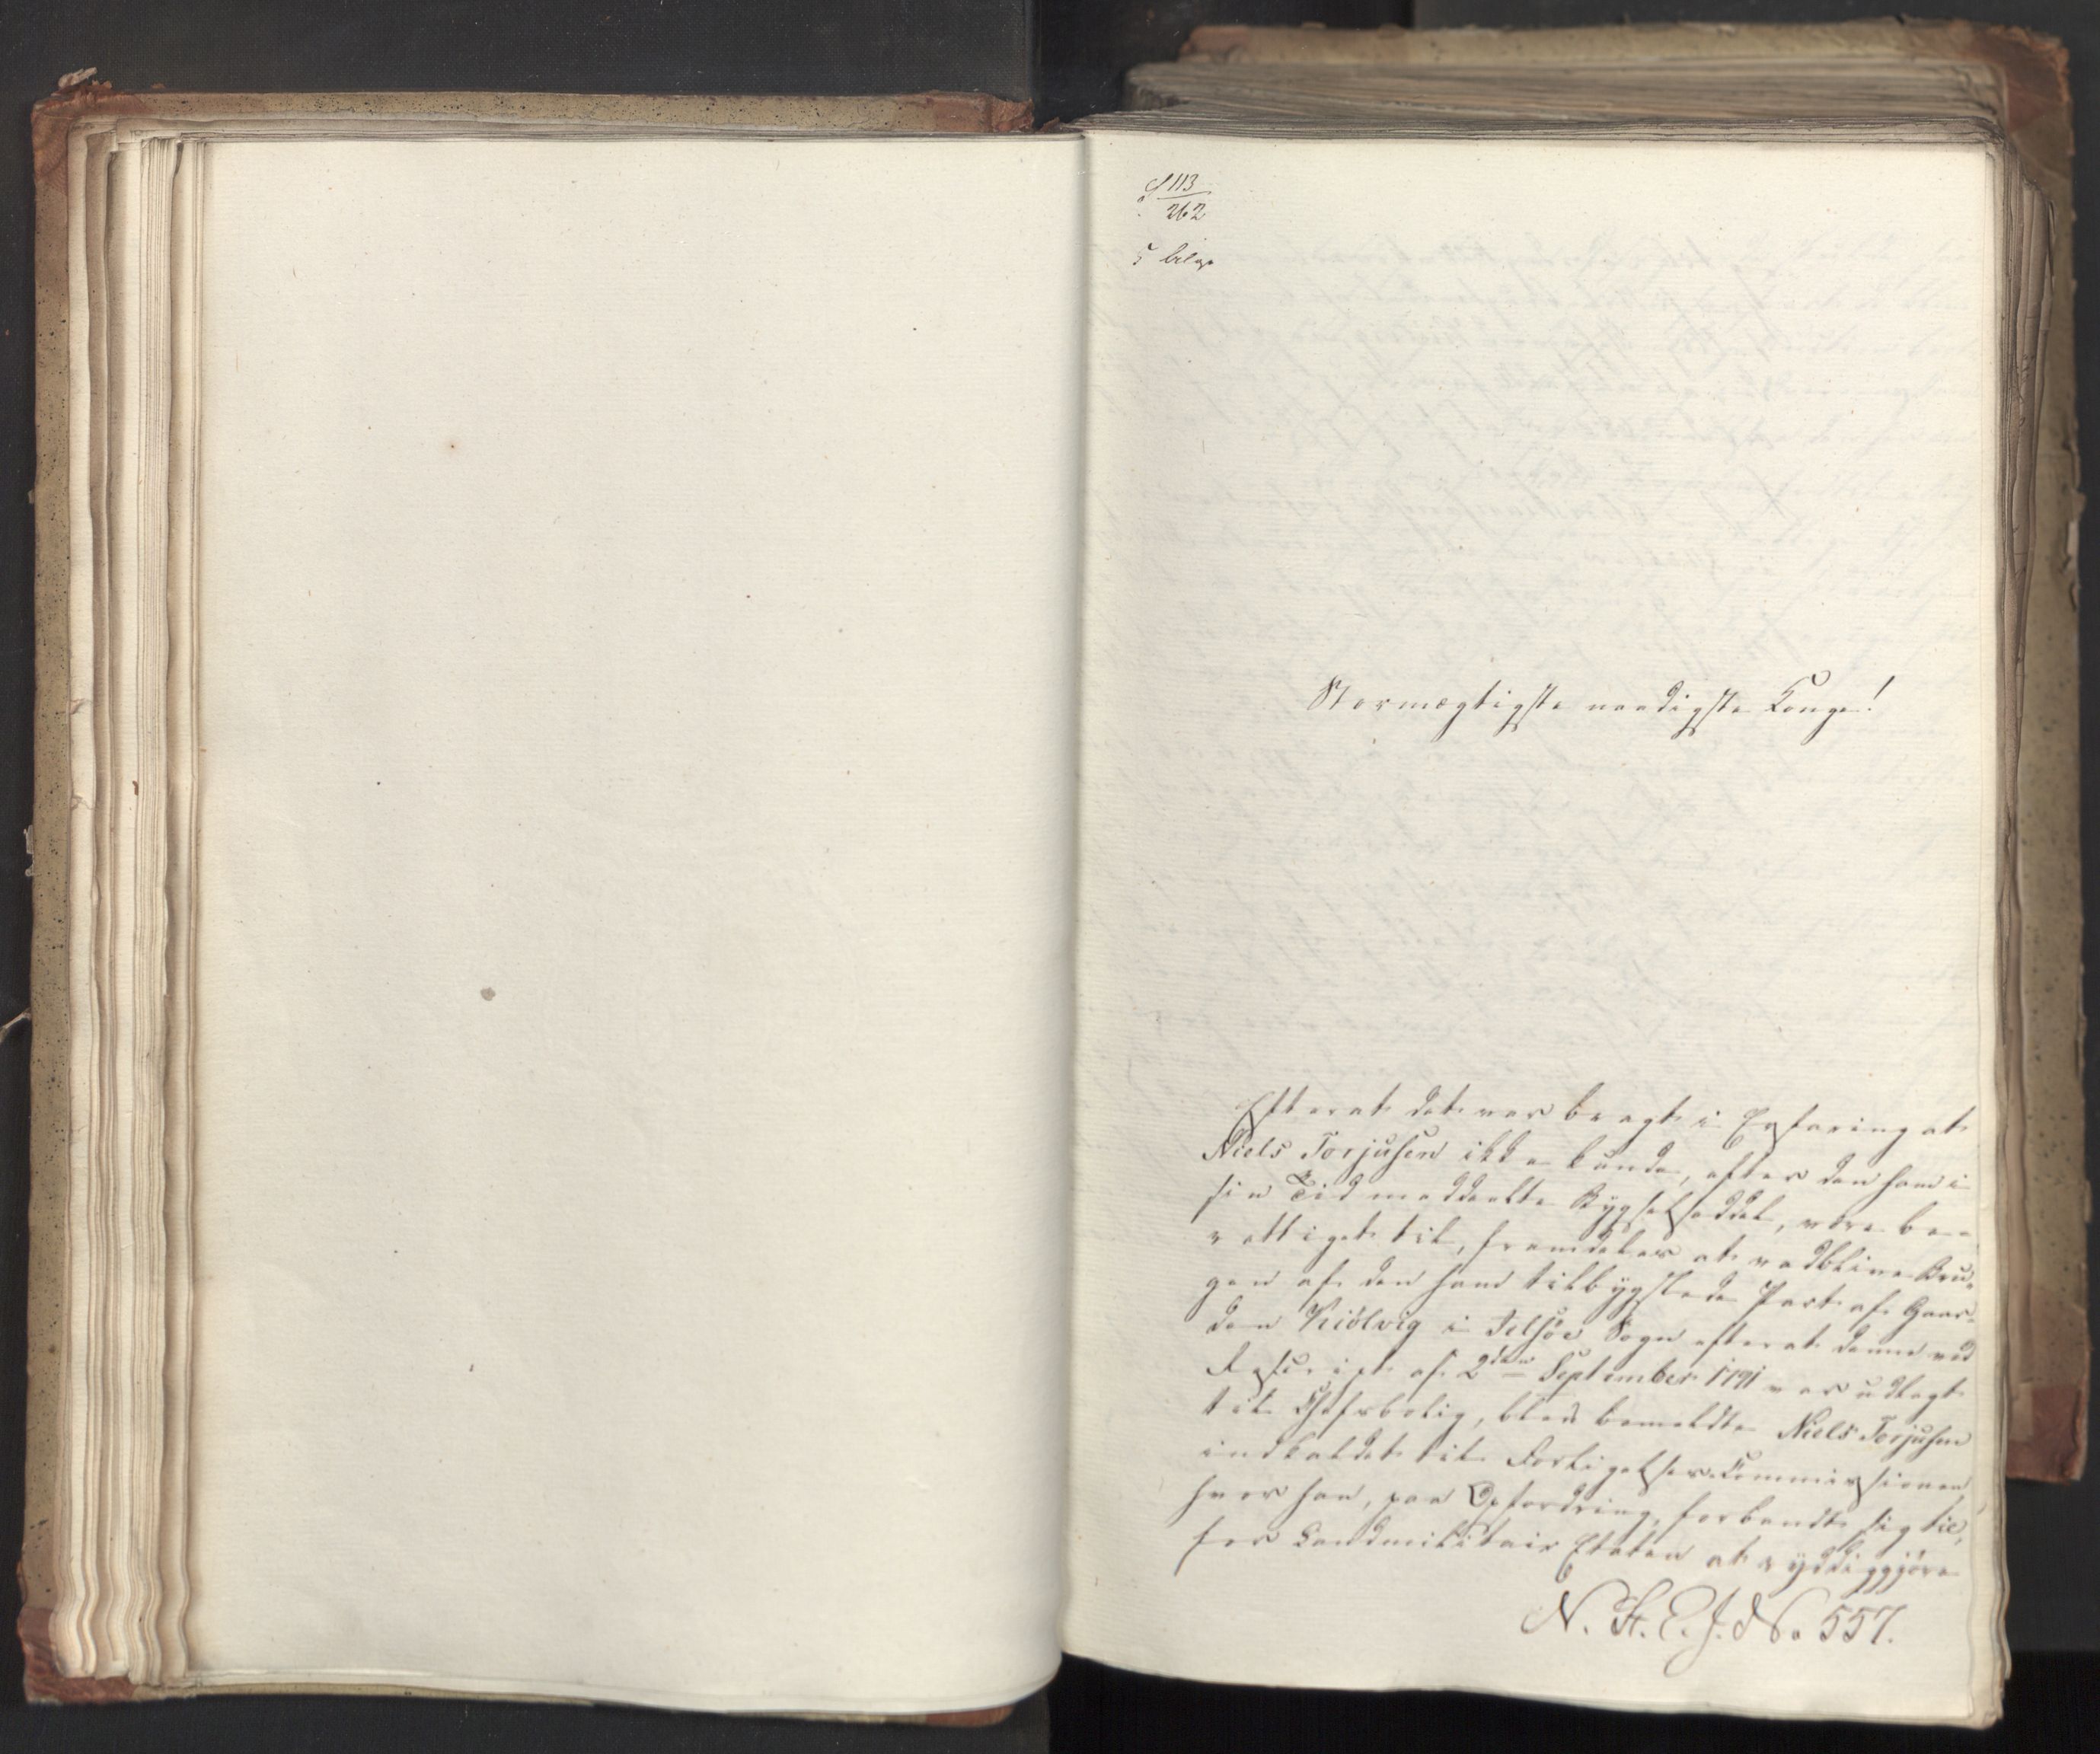 113
262
5 bilag
Stormægtigste naadigste Konge!
Efterat det var bragt i Erfaring at
Niels Torjusen ikke kunde, efter den ham i
sin Tid meddeelte Bygselseddel, være be-
rettiget til, fremdeles at vedblive Bru-
gen af den ham tilbygslede Part af Gaar-
den Kiölvig i Jelsöe Sogn efterat denne ved
Rescript af 2den September 1791 var udlagt
til Chefsbolig, blev bemeldte Niels Torjusen
indkaldet til Forligelses-Commissionen
hvor han, paa Opfordring, forbandt sig til,
for Landmilitair Etaten at ryddiggjöre
N. H. E. J. No 557.